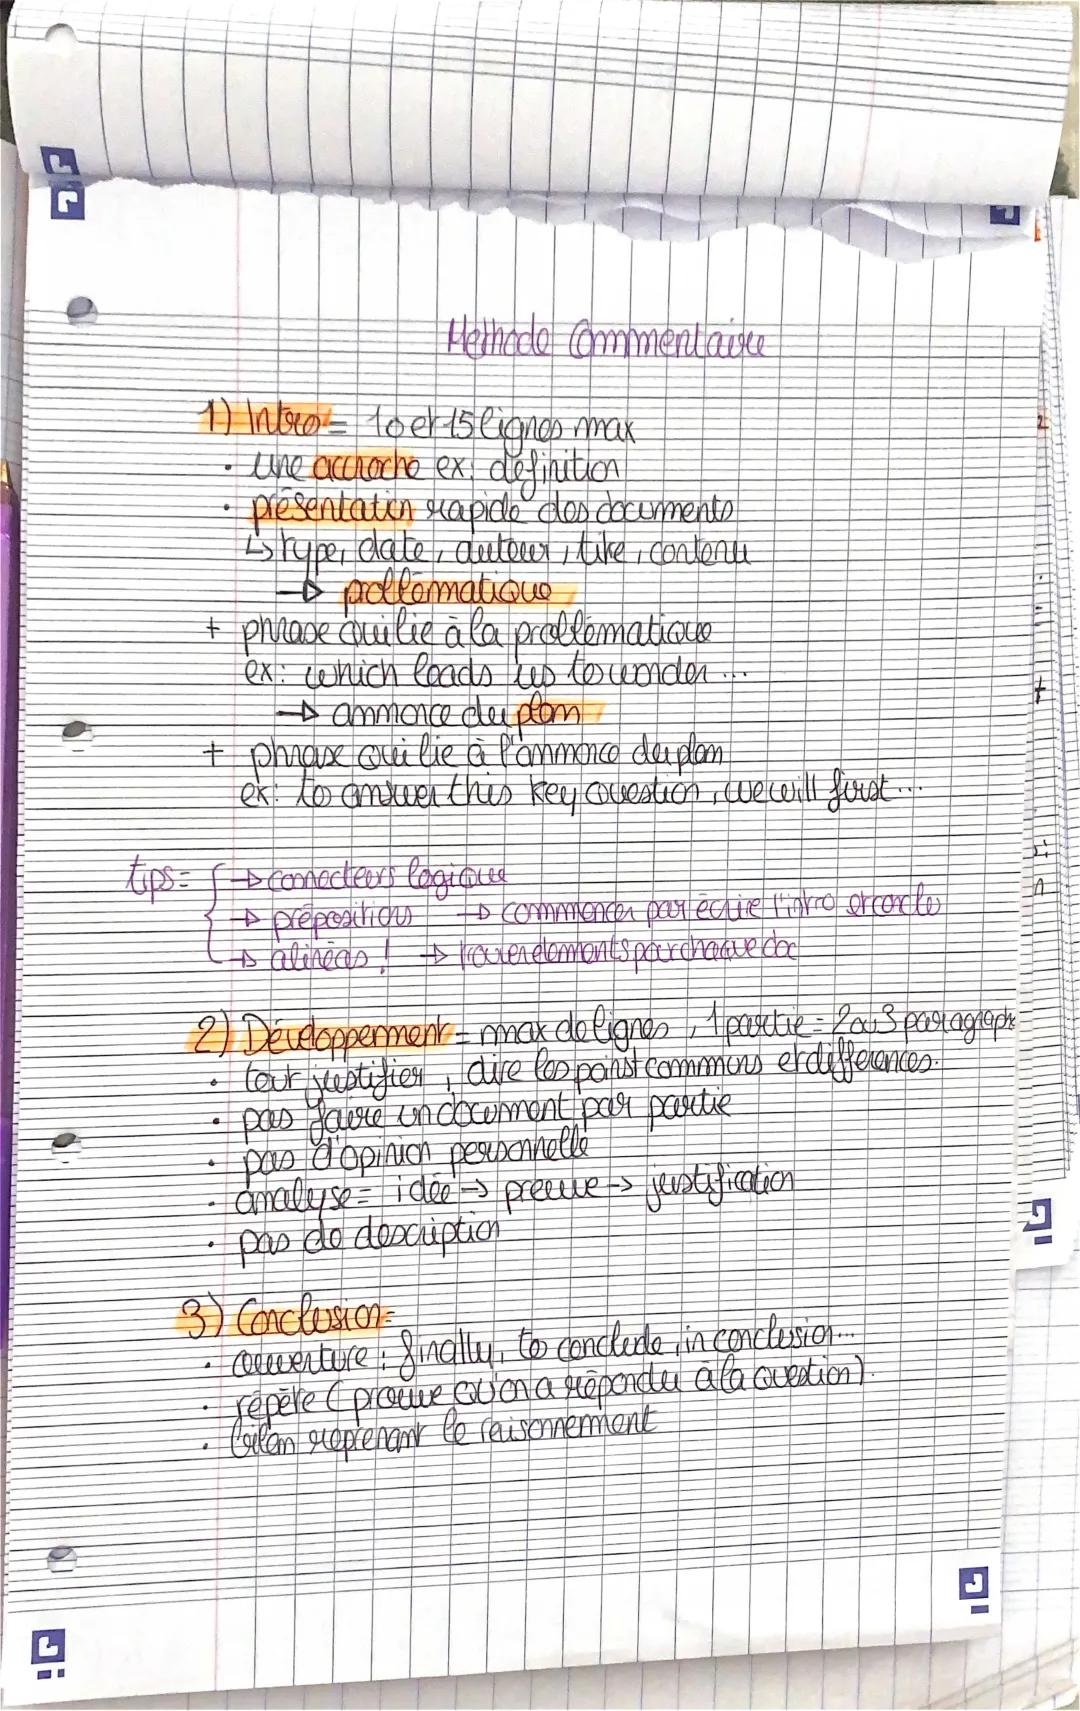 Méthode Commentaire
1) Intro = 10 et 15 lignes max
· une accroche ex: définition
· présentation rapide des documents
↳ type, date, auteur, titre, contenu
→ problématique
+ phrase qui lie à la problématique
ex: which leads us to wonder ...
→ annonce du plan
+ phrase qui lie à l'annonce du plan
ex: to answer this key question, we will first...
tips = → connecteurs logique
→ prépositions → commencer par écrire l'intro et conclu
→ alinéas ! → trouver elements pour chaque doc
2) Développement = max de lignes, 1 partie = 2 ou 3 paragraphe
· tout justifier, dire les points communs et différences.
· pas faire un document par partie
· pas d'opinion personnelle
· analyse = idée → preuve → justification
· pas de description
3) Conclusion =
· ouverture : finally, to conclude, in conclusion...
· répète (prouve qu'on a répondu à la question).
· bilan reprenant le raisonnement